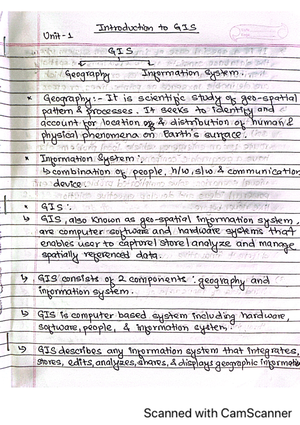 Introduction to GIS
Unit-1
GIS
Geography Information System.
* Geography - It is scientific study of geo-spatial
pattern & processes. It seeks to identity and
account for location of & distribution of human &
physical phenomena on Earth's surface.
* Information System :-
↳ combination of people, h/w, s/w & communication
device.
* GIS :-
↳ GIS, also known as geo-spatial information system,
are computer software and hardware systems that
enables user to capture/store/analyze and manage
spatially referenced data.
↳ GIS consists of 2 components : geography and
information system.
↳ GIS is computer based system including hardware,
software, people, & information system.
↳ GIS describes any information system that integrates,
stores, edits, analyzes, shares, & displays geographic information
Scanned with CamScanner